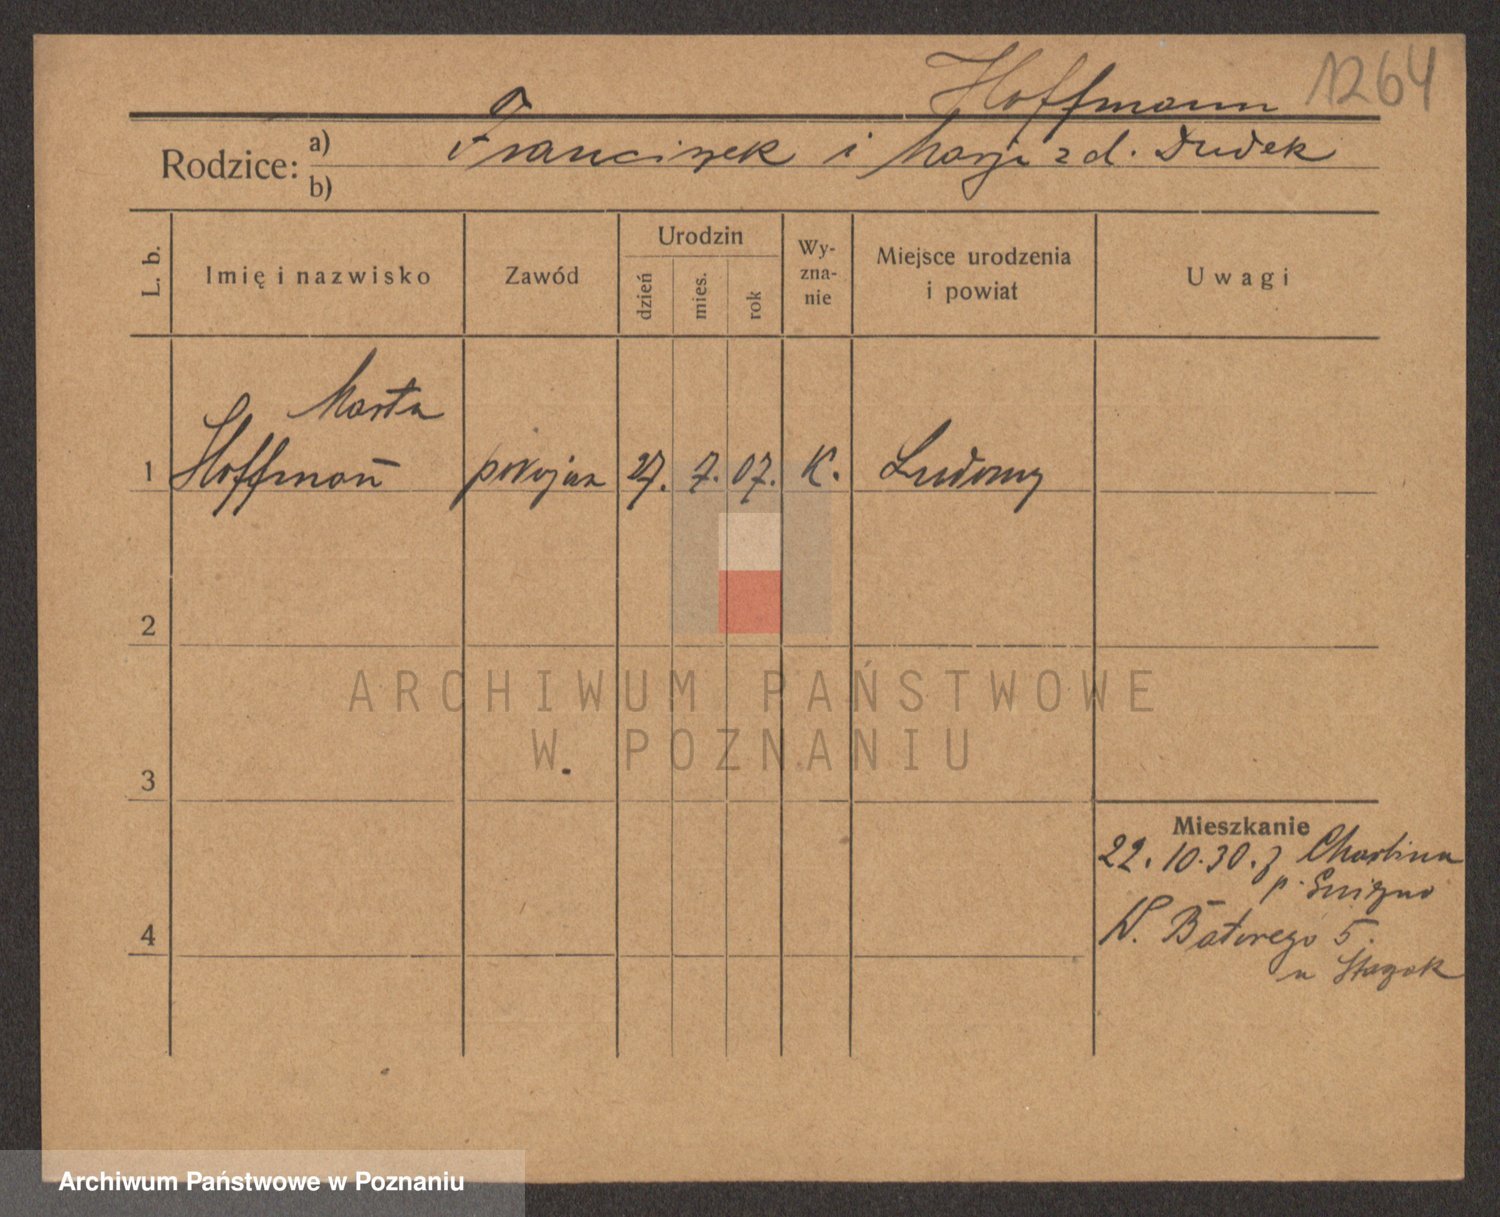 Hoffmann 1264
Rodzice: a) Franciszek i Marja z d. Dudek
b)
L. b. Imię i nazwisko Zawód Urodzin dzień mies. rok Wyznanie Miejsce urodzenia i powiat Uwagi
Marta
1 Hoffmann pokojan 27. 7. 07. K. Ludomy
2
ARCHIWUM PAŃSTWOWE
W POZNANIU
3
Mieszkanie
22. 10. 30. z
p.
4 W. Batorego 5.
u
Archiwum Państwowe w Poznaniu